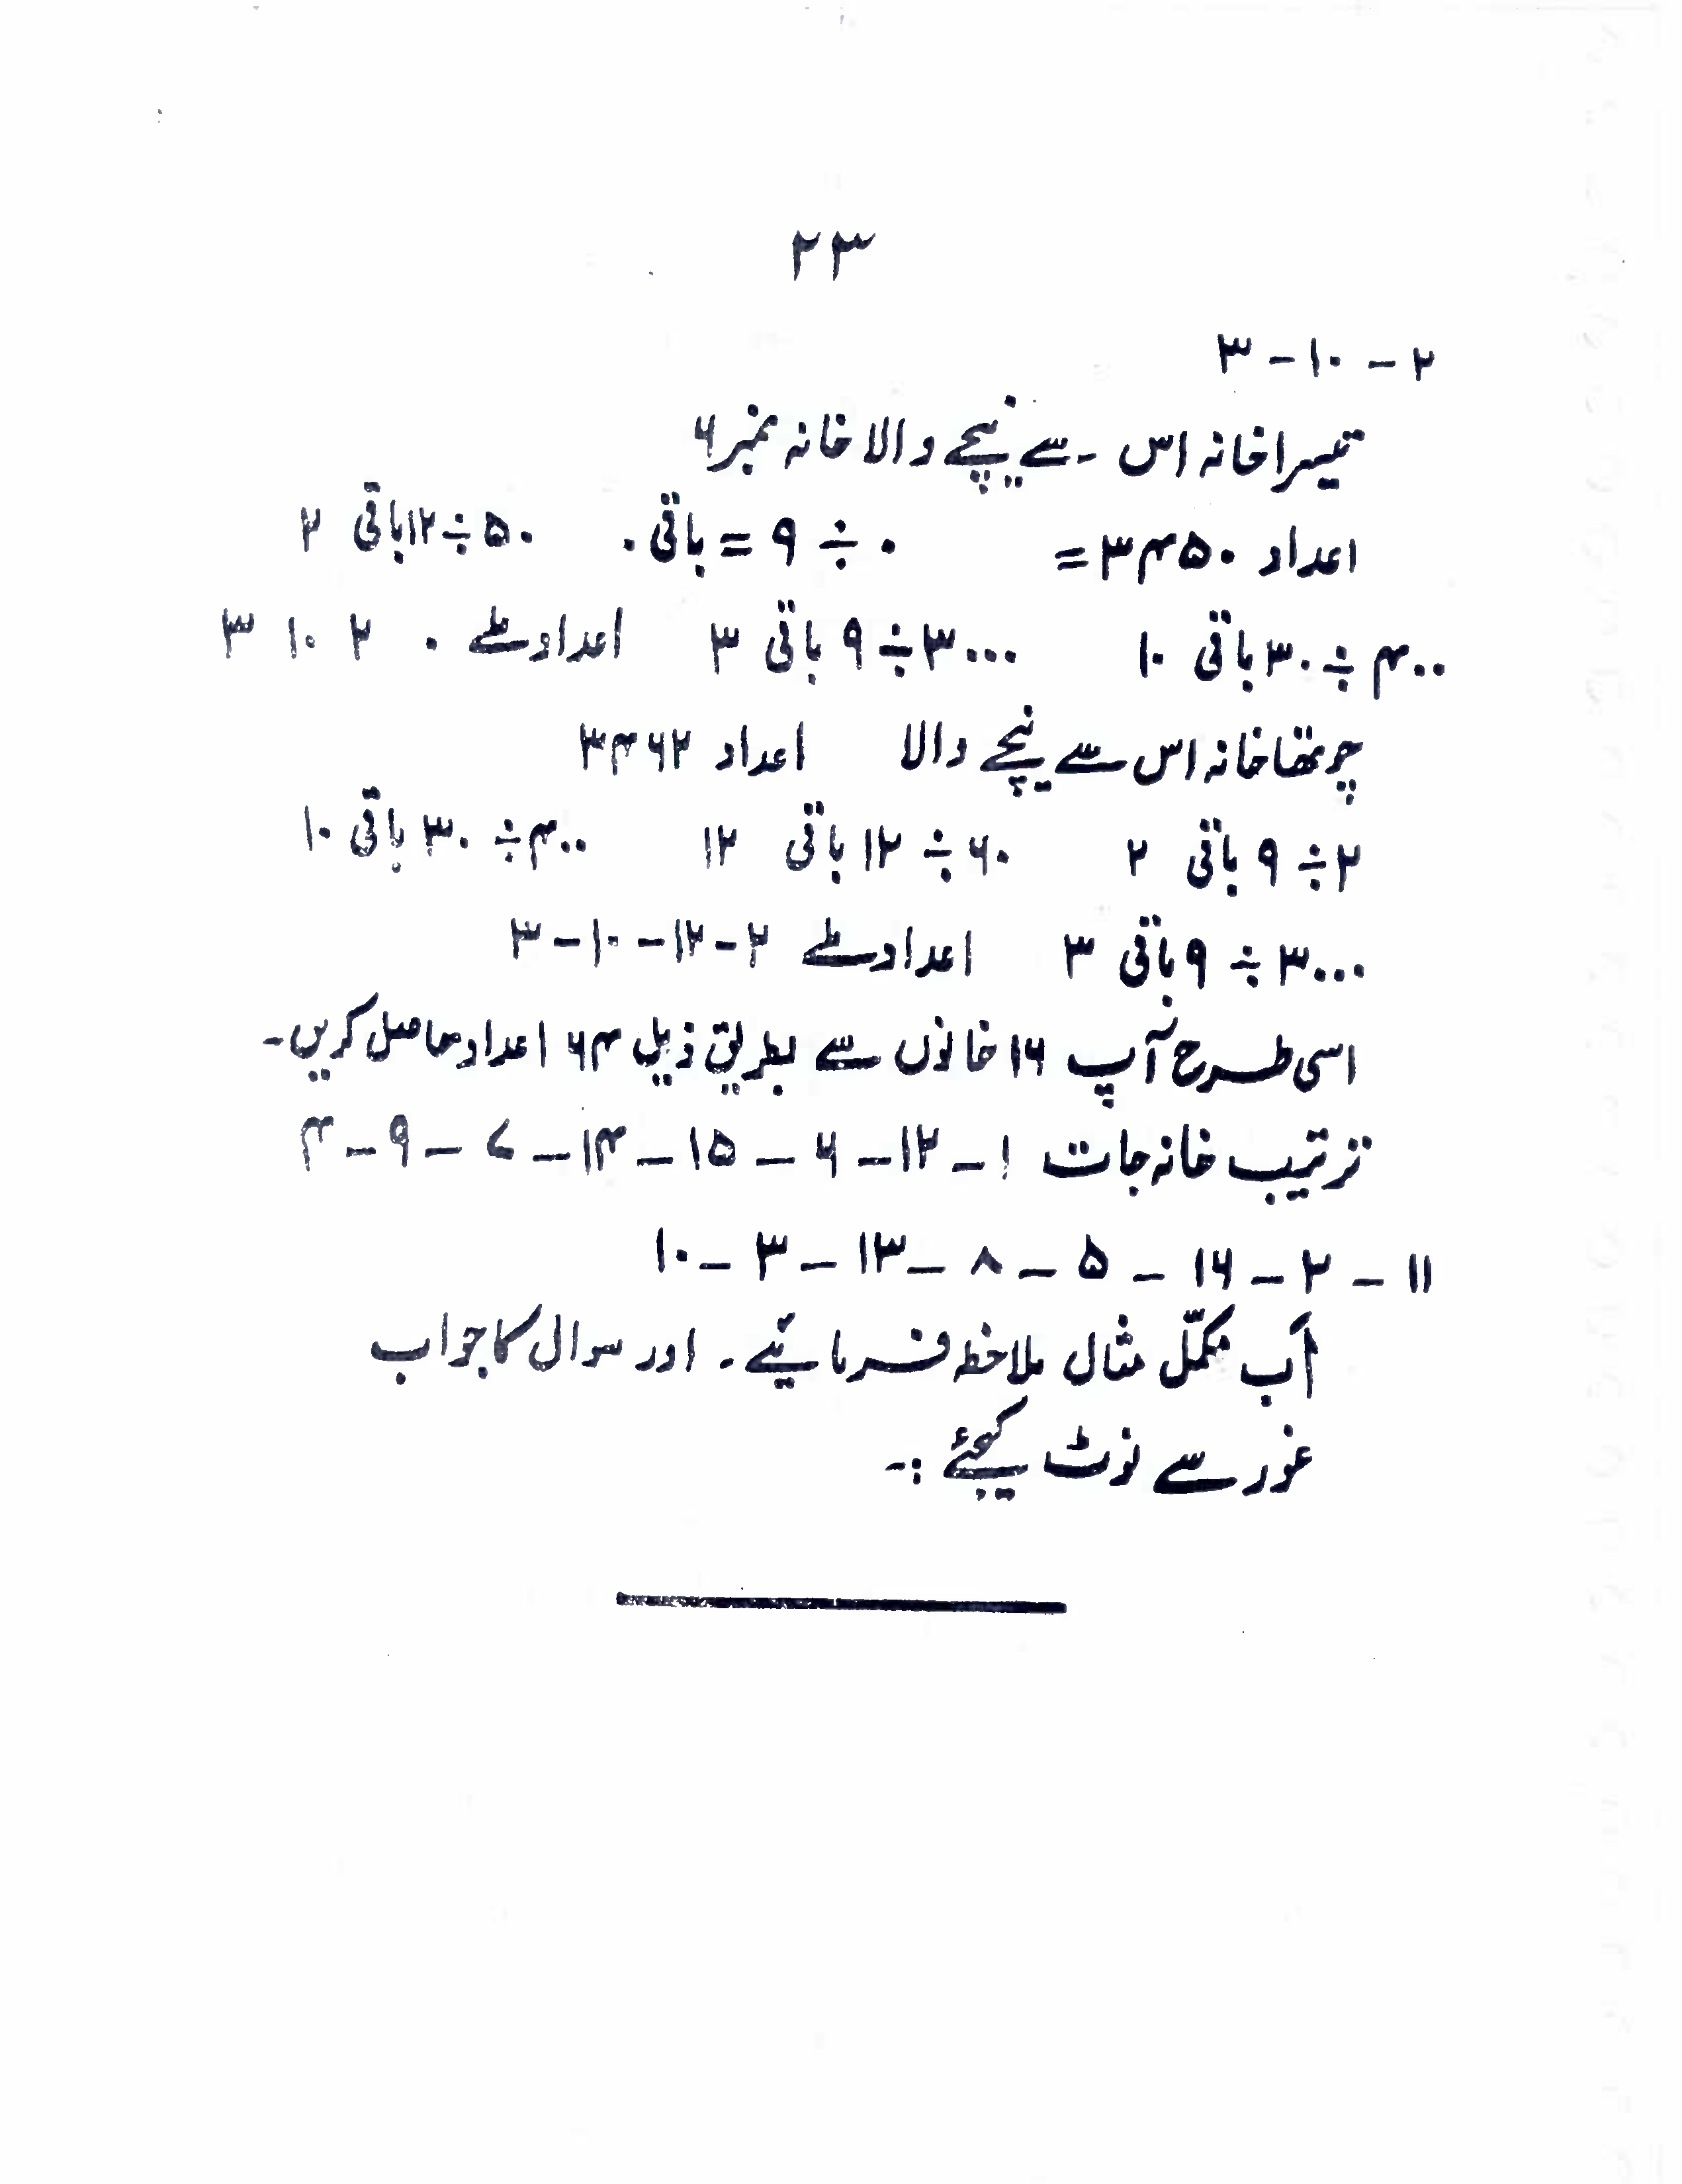 ۲۳
۲ - ۱۰ - ۳
تیسرا خانہ اس سے نیچے والا خانہ نمبر ۶
اعداد ۳۴۵۰ = ۰ ÷ ۹ = باقی ۰ ۵۰ ÷ ۱۲ باقی ۲
۴۰۰ ÷ ۳۰ باقی ۱۰ ۳۰۰۰ ÷ ۹ باقی ۳ اعداد ملے ۰ ۲ ۱۰ ۳
چوتھا خانہ اس سے نیچے والا اعداد ۳۴۶۲
۲ ÷ ۹ باقی ۲ ۶۰ ÷ ۱۲ باقی ۱۲ ۴۰۰ ÷ ۳۰ باقی ۱۰
۳۰۰۰ ÷ ۹ باقی ۳ اعداد ملے ۲-۱۲-۱۰-۳
اسی طرح آپ ۱۶ خانوں سے بطریق ذیل ۶۴ اعداد حاصل کریں۔
ترتیب خانہ جات ۱ - ۱۲ - ۶ - ۱۵ - ۱۴ - ۷ - ۹ - ۴
۱۱ - ۲ - ۱۶ - ۵ - ۸ - ۱۳ - ۳ - ۱۰
اَب مکمّل مثال ملاخظہ فرمائیے۔ اور سوال کا جواب
غور سے نوٹ کیجئے :-